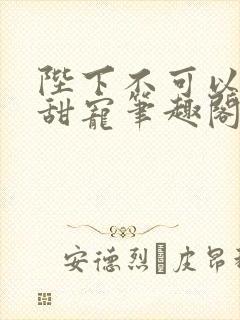 陛下不可以
甜寵筆趣閣
安德烈皮昂